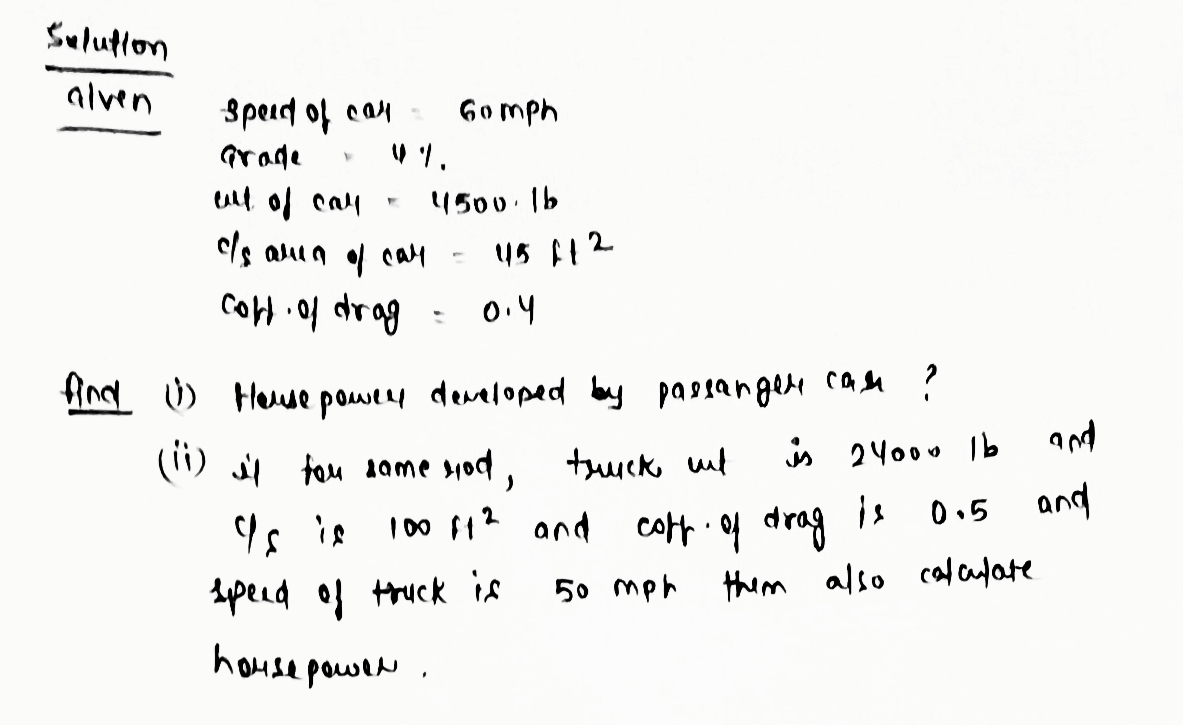 Solution
Given
Speed of car = 60 mph
Grade = 4%.
wt. of car = 4500 lb
c/s area of car = 45 ft2
Coff. of drag = 0.4
find (i) Horse power developed by passanger car ?
(ii) if for same rod, truck wt is 24000 lb and
c/s is 100 ft2 and coff. of drag is 0.5 and
speed of truck is 50 mph them also calculate
horse power.